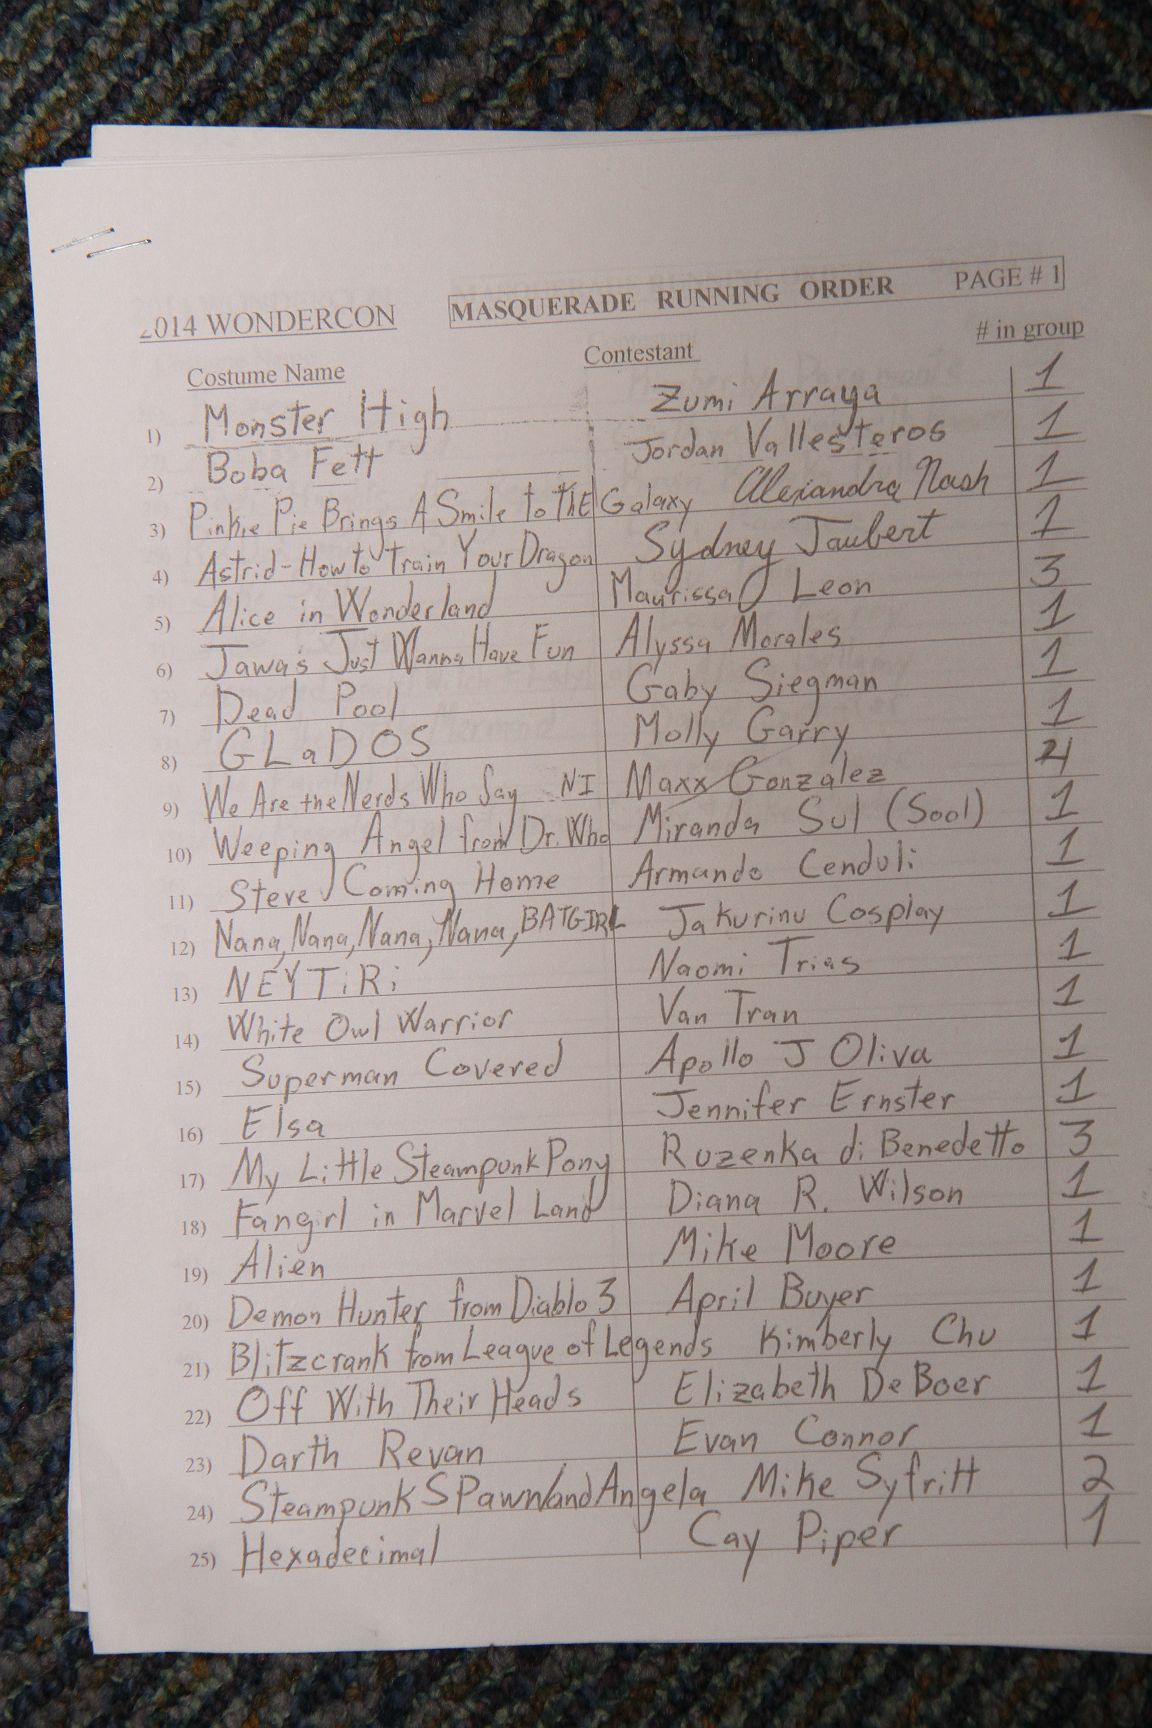 2014 WONDERCON MASQUERADE RUNNING ORDER PAGE # 1
Costume Name Contestant # in group
1) Monster High Zumi Arraya 1
2) Boba Fett Jordan Vallesteros 1
3) Pinkie Pie Brings A Smile to THE Galaxy Alexandra Nash 1
4) Astrid-How to Train Your Dragon Sydney Jaubert 1
5) Alice in Wonderland Maurissa Leon 3
6) Jawa's Just Wanna Have Fun Alyssa Morales 1
7) Dead Pool Gaby Siegman 1
8) GLaDOS Molly Garry 1
9) We Are the Nerds Who Say NI Maxx Gonzalez 4
10) Weeping Angel from Dr. Who Miranda Sul (Sool) 1
11) Steve Coming Home Armando Cenduli 1
12) Nana, Nana, Nana, Nana, BATGIRL Jakurinu Cosplay 1
13) NEYTiRi Naomi Trias 1
14) White Owl Warrior Van Tran 1
15) Superman Covered Apollo J Oliva 1
16) Elsa Jennifer Ernster 1
17) My Little Steampunk Pony Ruzenka di Benedetto 3
18) Fangirl in Marvel Land Diana R. Wilson 1
19) Alien Mike Moore 1
20) Demon Hunter from Diablo 3 April Buyer 1
21) Blitzcrank from League of Legends Kimberly Chu 1
22) Off With Their Heads Elizabeth DeBoer 1
23) Darth Revan Evan Connor 1
24) Steampunk SPawn/and Angela Mike Syfritt 2
25) Hexadecimal Cay Piper 1